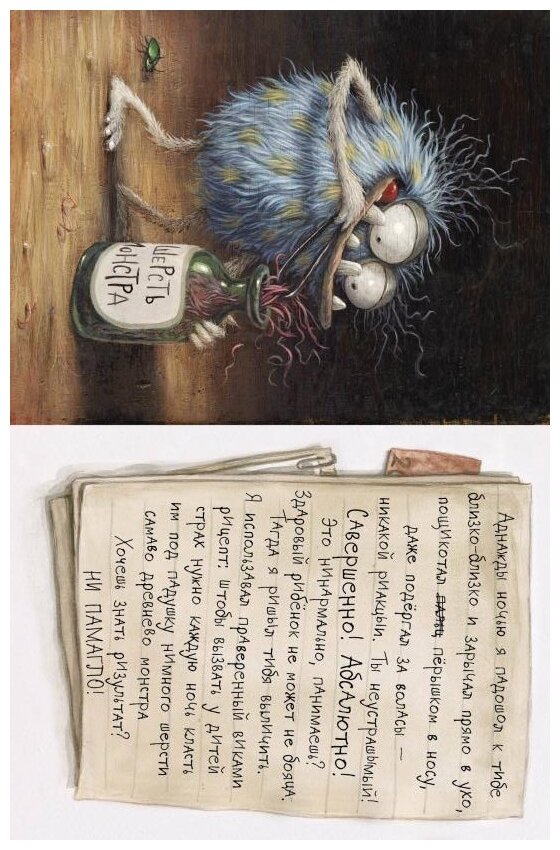 ШЕРСТЬ
МОНСТРА
Аднажды ночью я падошол к тибе
близко-близко и зарычал прямо в ухо,
пощикотал пёрышком в носу,
даже подёргал за воласы —
никакой риакцыи. Ты неустрашымый!
САвершенно! АбсАлютно!
Это нинармально, панимаешь?
ЗдАровый рибёнок не может не бояца.
Тагда я ришыл тибя выличить.
Я использАвал праверенный виками
рицепт: штобы вызвать у дитей
страх нужно каждую ночь класть
им под падушку нимного шерсти
самаво древнево монстра
Хочешь знать ризультат?
НИ ПАМАГЛО!